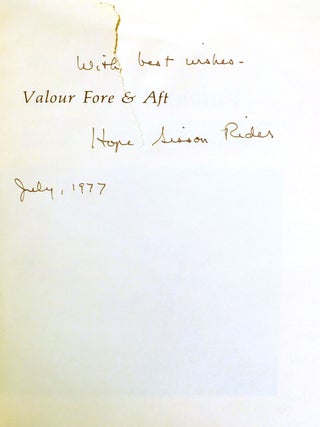 With best wishes-
Valour Fore & Aft
Hope Sisson Rider
July, 1977